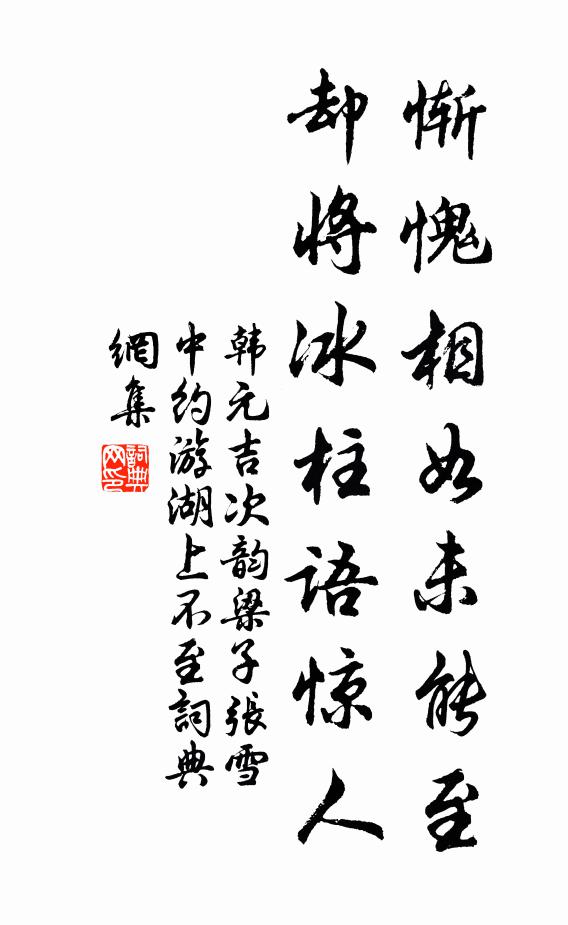 惭愧相如未能至
却将冰柱語惊人
韩元吉次韵梁子張雪
中约游湖上不至詞典
網集
詞典
网印